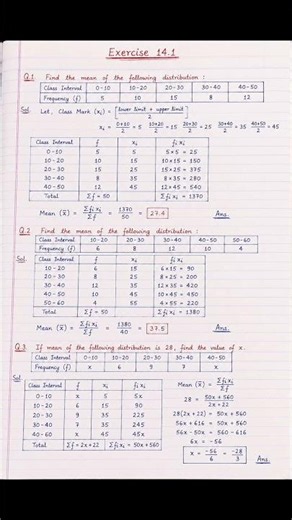 Exercise 14.1
Q.1 Find the mean of the following distribution :
Class Interval 0-10 10-20 20-30 30-40 40-50
Frequency (f) 5 10 15 8 12
Sol. Let, Class Mark (xi) = [lower limit + upper limit / 2]
xi = 0+10/2 = 5 10+20/2 = 15 20+30/2 = 25 30+40/2 = 35 40+50/2 = 45
Class Interval f xi fixi
0-10 5 5 5×5 = 25
10-20 10 15 10×15 = 150
20-30 15 25 15×25 = 375
30-40 8 35 8×35 = 280
40-50 12 45 12×45 = 540
Total Σf = 50 Σfixi = 1370
Mean (x̄) = Σfixi/Σf = 1370/50 = 27.4 Ans.
Q.2 Find the mean of the following distribution :
Class Interval 10-20 20-30 30-40 40-50 50-60
Frequency (f) 6 8 12 10 4
Sol.
Class Interval f xi fixi
10-20 6 15 6×15 = 90
20-30 8 25 8×25 = 200
30-40 12 35 12×35 = 420
40-50 10 45 10×45 = 450
50-60 4 55 4×55 = 220
Total Σf = 50 Σfixi = 1380
Mean (x̄) = Σfixi/Σf = 1380/40 = 37.5 Ans.
Q.3 If mean of the following distribution is 28, find the value of x.
Class Interval 0-10 10-20 20-30 30-40 40-50
Frequency (f) x 6 9 7 x
Sol
Class Interval f xi fixi
0-10 x 5 5x
10-20 6 15 90
20-30 9 35 225
30-40 7 35 245
40-60 x 45 45x
Total Σf = 2x+22 Σfixi = 50x+560
Mean (x̄) = Σfixi/Σf
28 = 50x + 560/2x + 22
28(2x + 22) = 50x + 560
56x + 616 = 50x + 560
56x - 50x = 560 - 616
6x = -56
x = -56/6 = -28/3 Ans.